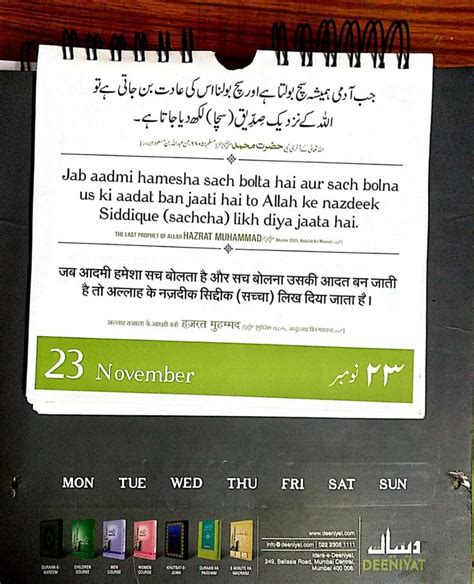 جب آدمی ہمیشہ سچ بولتا ہے اور سچ بولنا اس کی عادت بن جاتی ہے تو
اللہ کے نزدیک صِدِّیق (سچّا) لکھ دیا جاتا ہے۔
اللہ تعالیٰ کے آخری نبی حضرت محمد
Jab aadmi hamesha sach bolta hai aur sach bolna
us ki aadat ban jaati hai to Allah ke nazdeek
Siddique (sachcha) likh diya jaata hai.
THE LAST PROPHET OF ALLAH HAZRAT MUHAMMAD
जब आदमी हमेशा सच बोलता है और सच बोलना उसकी आदत बन जाती
है तो अल्लाह के नज़दीक सिद्दीक (सच्चा) लिख दिया जाता है।
अल्लाह तआला के आख़री नबी हज़रत मुहम्मद
23 November ۲۳ نومبر
MON TUE WED THU FRI SAT SUN
QURAAN-E-KAREEM
CHILDREN COURSE
MEN COURSE
WOMEN COURSE
KHUTBAT-E-JUMA
QURAAN KA PAIGHAM
5 MINUTE KA MADRASA
www.deeniyat.com
info@deeniyat.com | 022 2305 1111
Idara-e-Deeniyat,
249, Bellasis Road, Mumbai Central,
Mumbai 400 008.
دینیات
DEENIYAT